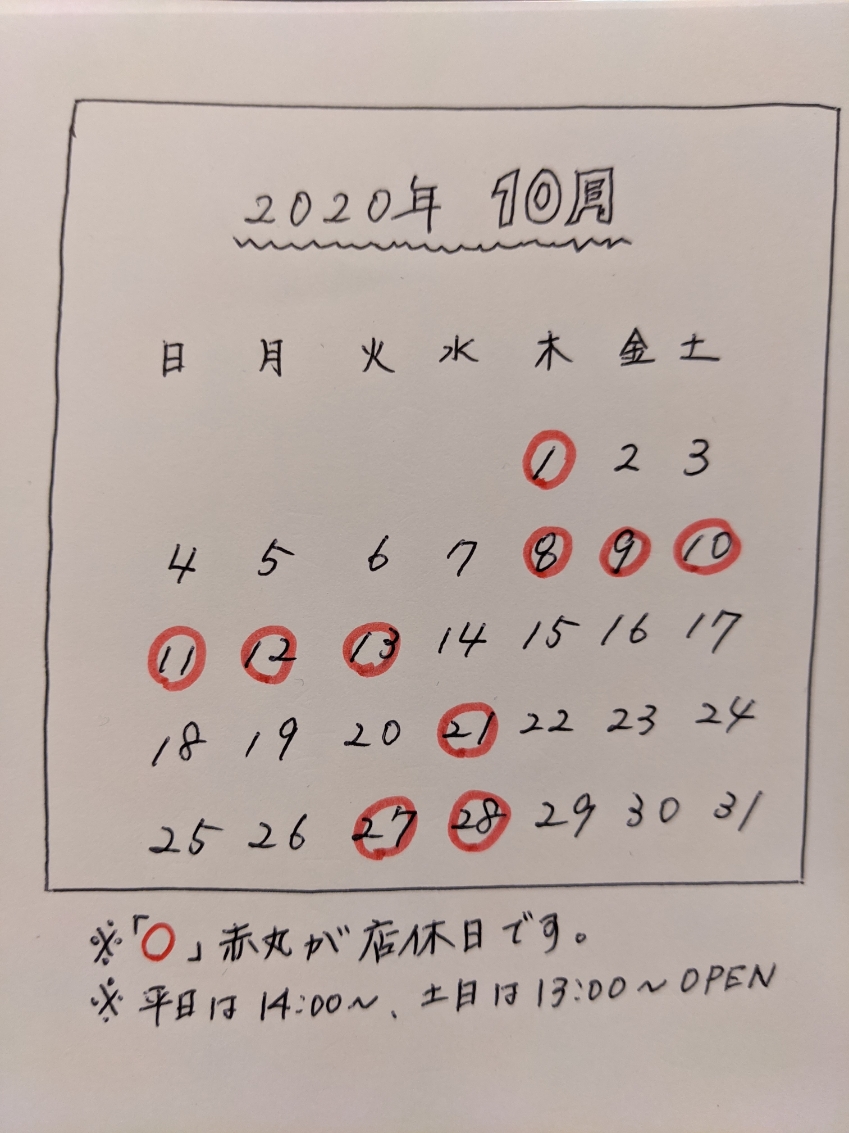 2020年 10月
日 月 火 水 木 金 土
1 2 3
4 5 6 7 8 9 10
11 12 13 14 15 16 17
18 19 20 21 22 23 24
25 26 27 28 29 30 31
※「○」赤丸が店休日です。
※ 平日は14:00~、土日は13:00~OPEN